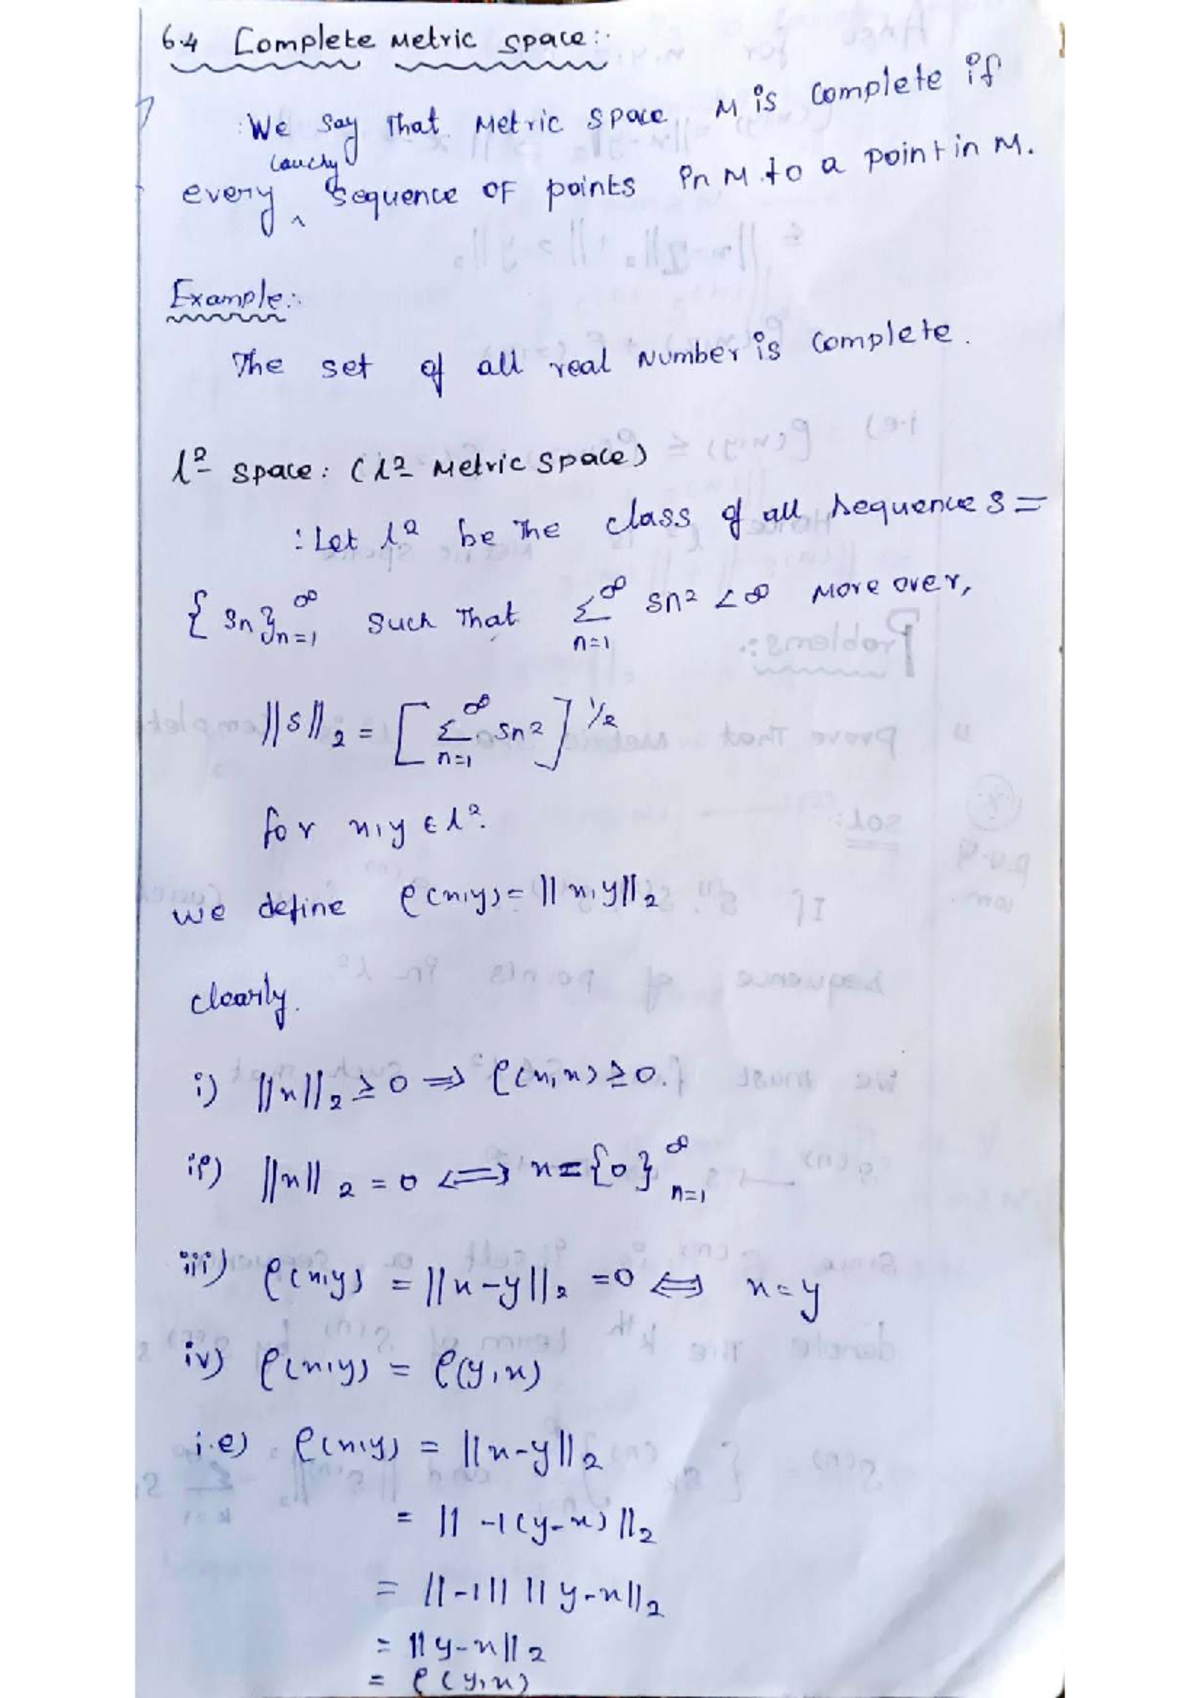 6.4 Complete Metric space:-
We say That Metric space M is complete if
cauchy
every ^ sequence of points in M to a point in M.
Example:-
The set of all real Number is complete.
l² space: (l² Metric space)
: Let l² be The class of all sequence s =
{sn}∞n=1 such That ∞Σn=1 sn² < ∞ More over,
||s||₂ = [∞Σn=1 sn²]^1/2
for x,y ∈ l².
we define ρ(x,y) = ||x,y||₂
clearly.
i) ||x||₂ ≥ 0 => ρ(x,x) ≥ 0.
ii) ||x||₂ = 0 <=> x = {0}∞n=1
iii) ρ(x,y) = ||x-y||₂ = 0 <=> x = y
iv) ρ(x,y) = ρ(y,x)
i.e) ρ(x,y) = ||x-y||₂
= ||-1(y-x)||₂
= ||-1|| ||y-x||₂
= ||y-x||₂
= ρ(y,x)